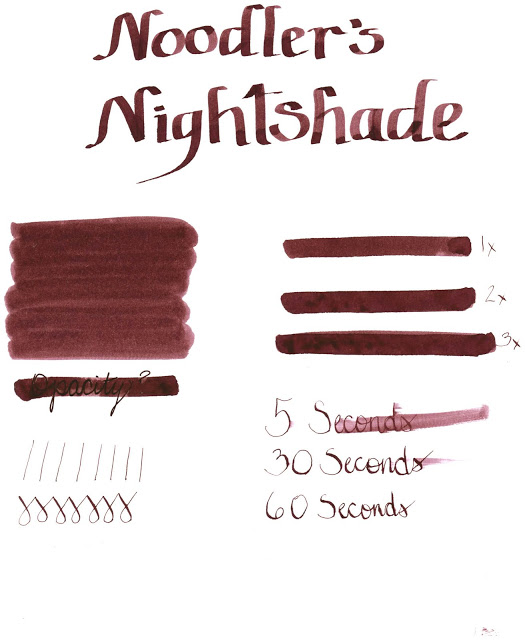 Noodler's
Nightshade
1x
2x
3x
Opacity?
5 Seconds
30 Seconds
60 Seconds